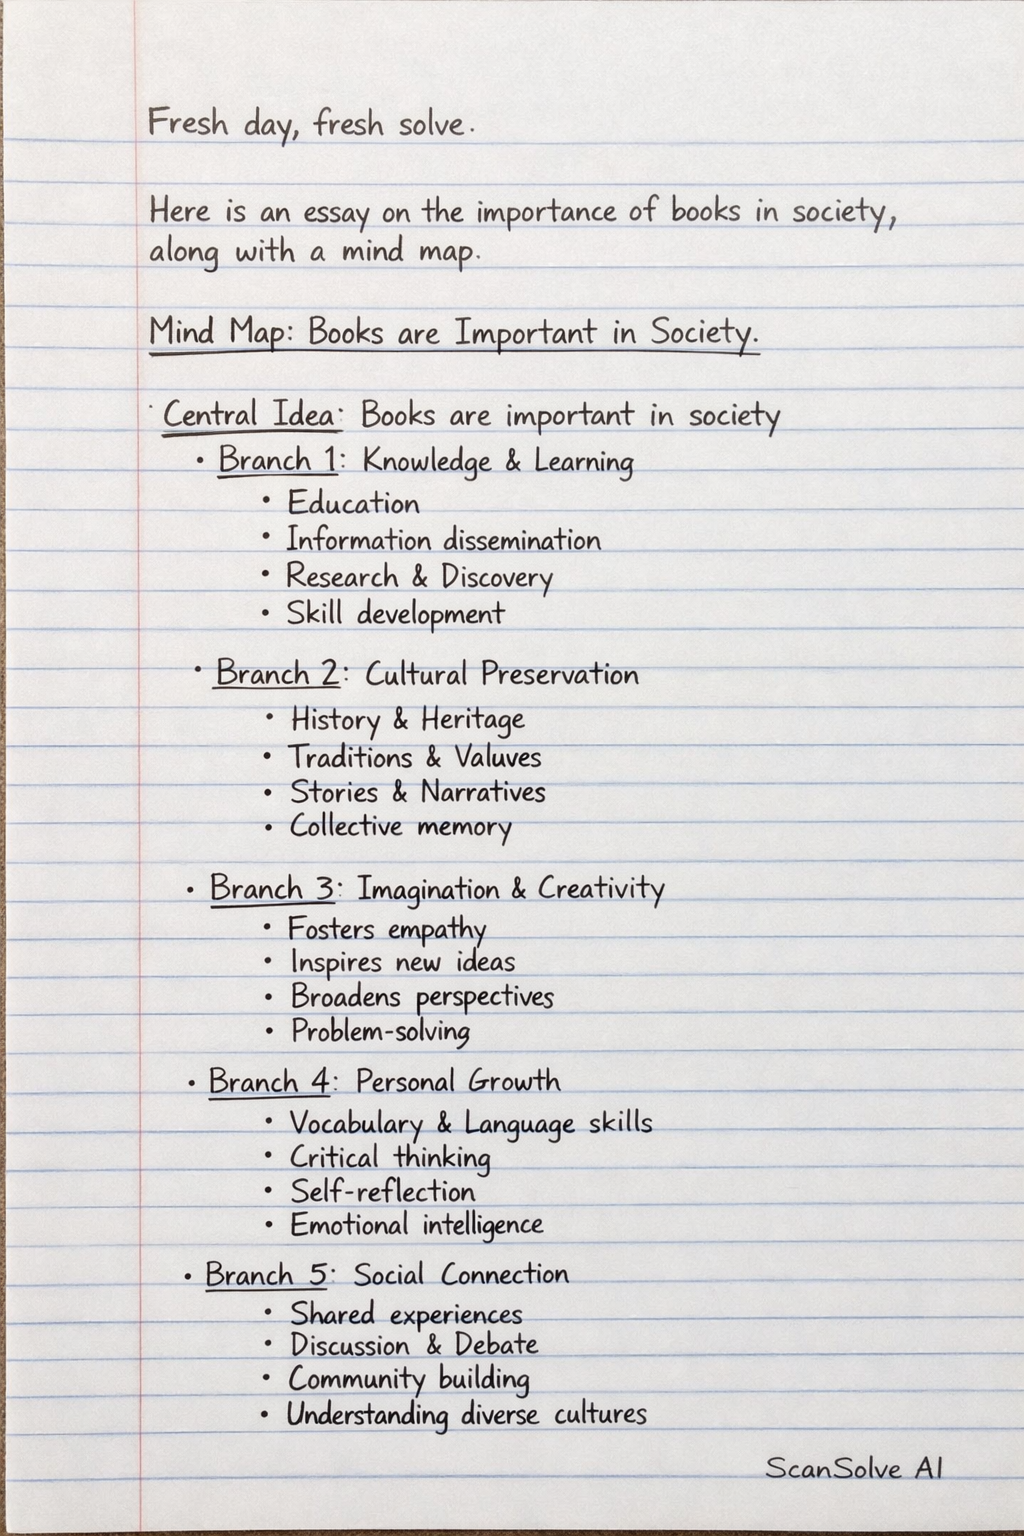 Fresh day, fresh solve.
Here is an essay on the importance of books in society,
along with a mind map.
Mind Map: Books are Important in Society.
· Central Idea: Books are important in society
• Branch 1: Knowledge & Learning
• Education
• Information dissemination
• Research & Discovery
• Skill development
• Branch 2: Cultural Preservation
• History & Heritage
• Traditions & Valuves
• Stories & Narratives
• Collective memory
• Branch 3: Imagination & Creativity
• Fosters empathy
• Inspires new ideas
• Broadens perspectives
• Problem-solving
• Branch 4: Personal Growth
• Vocabulary & Language skills
• Critical thinking
• Self-reflection
• Emotional intelligence
• Branch 5: Social Connection
• Shared experiences
• Discussion & Debate
• Community building
• Understanding diverse cultures
ScanSolve AI